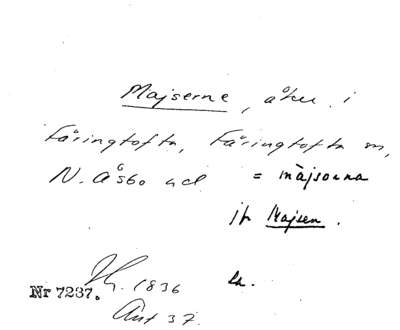 Majserne, åker i
Färingtofta, Färingtofta sn,
N. Åsbo hd = màjsorna
jfr Majsen.
1836 la.
Nr 7237.
Ant 37.